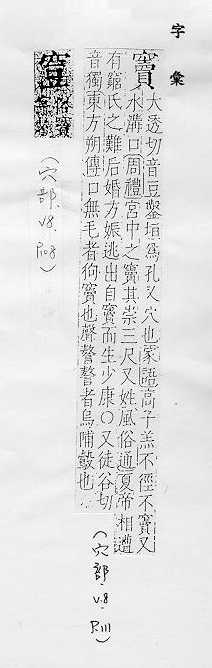 字彙
竇
大透切音豆鑿垣爲孔又穴也家語高子羔不徑不竇又
水溝口周禮宮中之竇其崇三尺又姓風俗通夏帝相遭
有窮氏之難后婚方娠逃出自竇而生少康○又徒谷切
音獨東方朔傳口無毛者狗竇也聲謷謷者烏哺鷇也
(穴部.V.8.P.111)
俗竇
(穴部.V8.P.108)